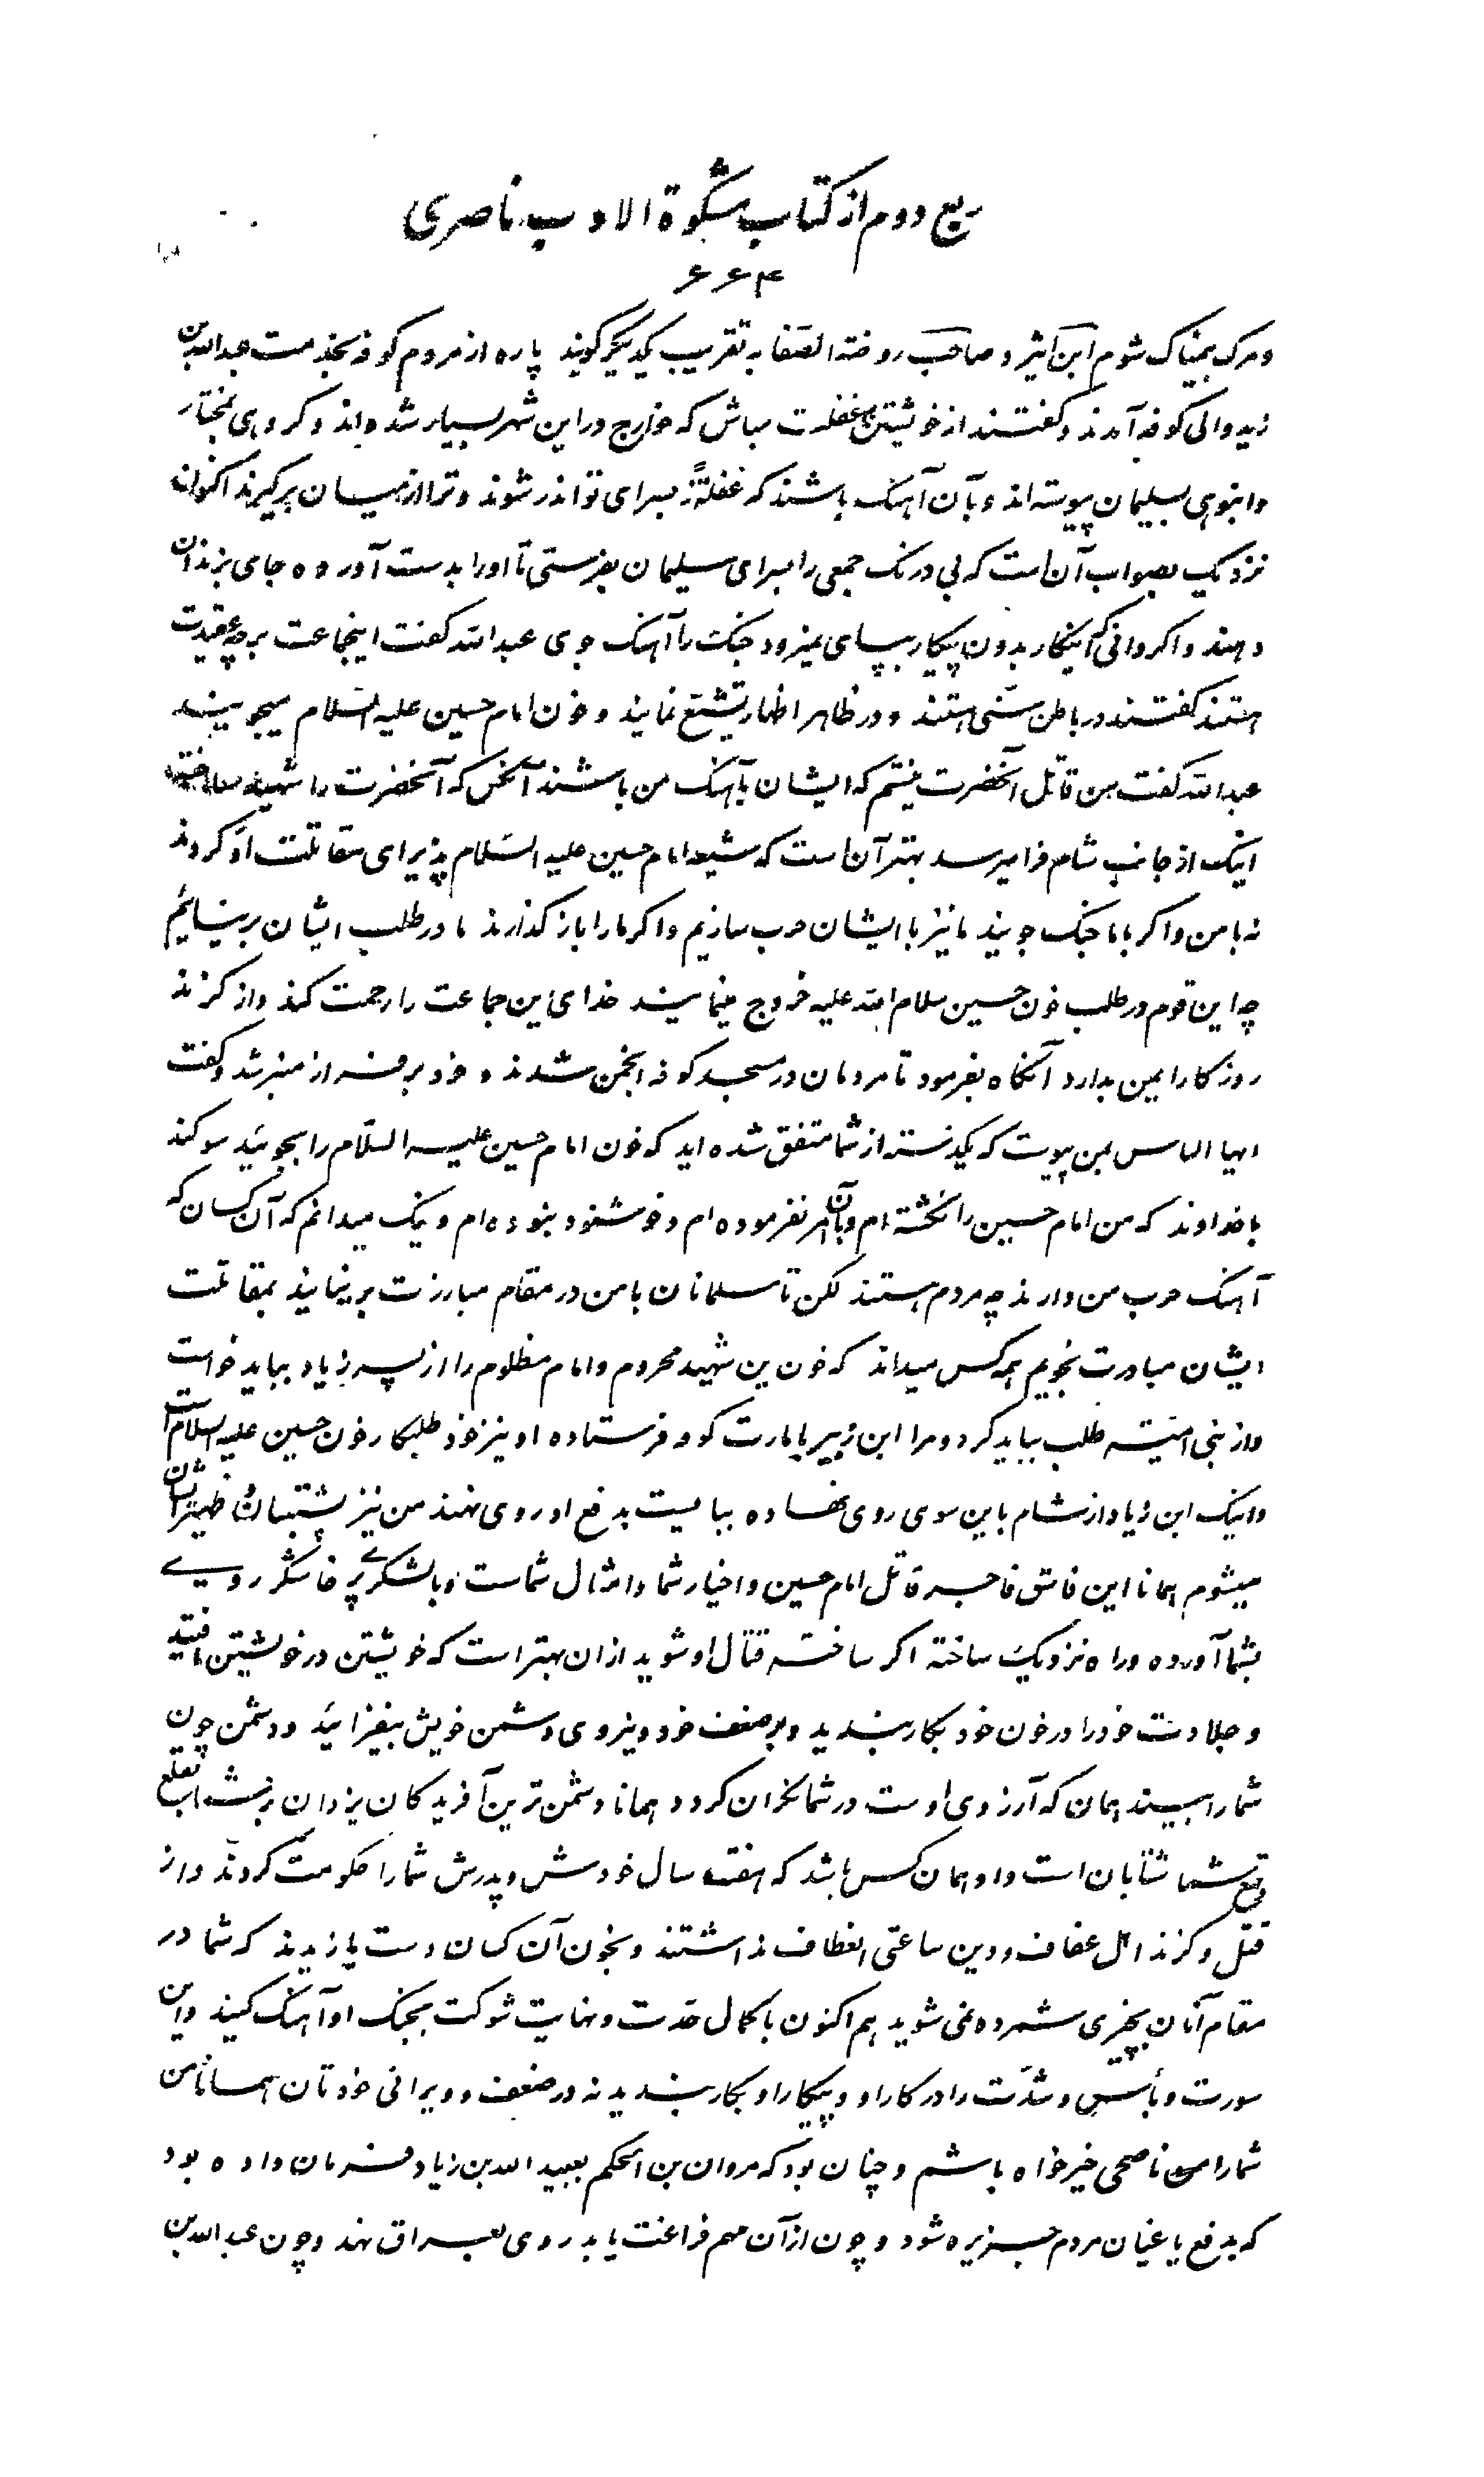 ربع دوم از کتاب مشکوة الادب ناصری
۶۶۴
و مرک بمناک شوم ابن اثیر و صاحب روضة الصفا به تقریب یکدیگر گویند پاره از مردم کوفه بخدمت عبدالله بن
زید والی کوفه آمدند و گفتند از خویشتن بغفلت مباش که خوارج در این شهر بسیار شده‌اند و گروهی بمختار
و انبوهی بسلیمان پیوسته‌اند و بآن آهنگ باشند که غفلةً بسرای تو اندر شوند و ترا از میان برگیرند اکنون
نزدیک بصواب آن است که بی درنگ جمعی را بسرای سلیمان بفرستی تا او را بدست آورده جای بزندان
دهند و اگر دانی که اینکار بدون پیکار بپای نمیرود جنگ را آهنگ جوی عبدالله گفت اینجماعت بر چه عقیدت
هستند گفتند در باطن سنی هستند و در ظاهر اظهار تشیع نمایند و خون امام حسین علیه السلام میجویند
عبدالله گفت من قاتل آنحضرت نیستم که ایشان بآهنگ من باشند آنکس که آنحضرت را شهید ساخته
اینک از جانب شام فرا میرسد بهتر آن است که شیعه امام حسین علیه السلام پذیرای مقاتلت او گردند
نه با من و اگر با ما جنگ جویند ما نیز با ایشان حرب سازیم و اگر ما را باز گذارند ما در طلب ایشان بر نیائیم
چه این قوم در طلب خون حسین سلام الله علیه خروج مینمایند خدای این جماعت را رحمت کند و از گزند
روزگار ایمن بدارد آنگاه بفرمود تا مردمان در مسجد کوفه انجمن شدند و خود بر فراز منبر شد و گفت
ایها الناس بمن پیوست که یکدسته از شما متفق شده‌اید که خون امام حسین علیه السلام را بجوئید سوگند
با خداوند که من امام حسین را نکشته‌ام و بآن امر نفرموده‌ام و خوشنود نبوده‌ام و نیک میدانم که آن کسان که
آهنگ حرب من دارند چه مردم هستند لکن تا مسلمانان با من در مقام مبارزت بر نیایند بمقاتلت
ایشان مبادرت نجویم همه کس میداند که خون این شهید محروم و امام مظلوم را از پسر زیاد بباید خواست
و از بنی امیه طلب بباید کرد و مرا ابن زبیر بامارت کوفه فرستاده او نیز خود طلبکار خون حسین علیه السلام است
و اینک ابن زیاد از شام باین سوی روی نهاده ببایست بدفع او روی نهند من نیز پشتبان و ظهیر ایشان
میشوم همانا این فاسق فاجر قاتل امام حسین و اخیار شما و امثال شماست و با لشکری پرخاشگر روی
بشما آورده و راه نزدیک ساخته اگر ساخته قتال او شوید از ان بهتر است که خویشتن در خویشتن افتید
و جلادت خود را در خون خود بکار بندید و بر ضعف خود و نیروی دشمن خویش بیفزائید و دشمن چون
شما را ببیند همان که آرزوی اوست در شما نگران گردد همانا دشمن ترین آفریدگان یزدان بر شما بقلع
و قمع شما شتابان است و او همان کس باشد که هفت سال خودش و پدرش شما را حکومت کردند و از
قتل و گزند اهل عفاف و دین ساعتی انعطاف نداشتند و بخون آن کسان دست یازیدند که شما در
مقام آنان بچیزی شمرده نمی شوید هم اکنون با کمال قدرت و نهایت شوکت بجنگ او آهنگ کنید و این
سورت و بأس و شدّت را در کار او و پیکار او بکار بندید نه در ضعف و ویرانی خودتان همانا من
شما را ناصحی خیرخواه باشم و چنان بود که مروان بن الحکم بعبید الله بن زیاد فرمان داده بود
که بدفع یاغیان مردم جزیره شود و چون از آن مهم فراغت یابد روی بعراق نهد و چون عبدالله بن